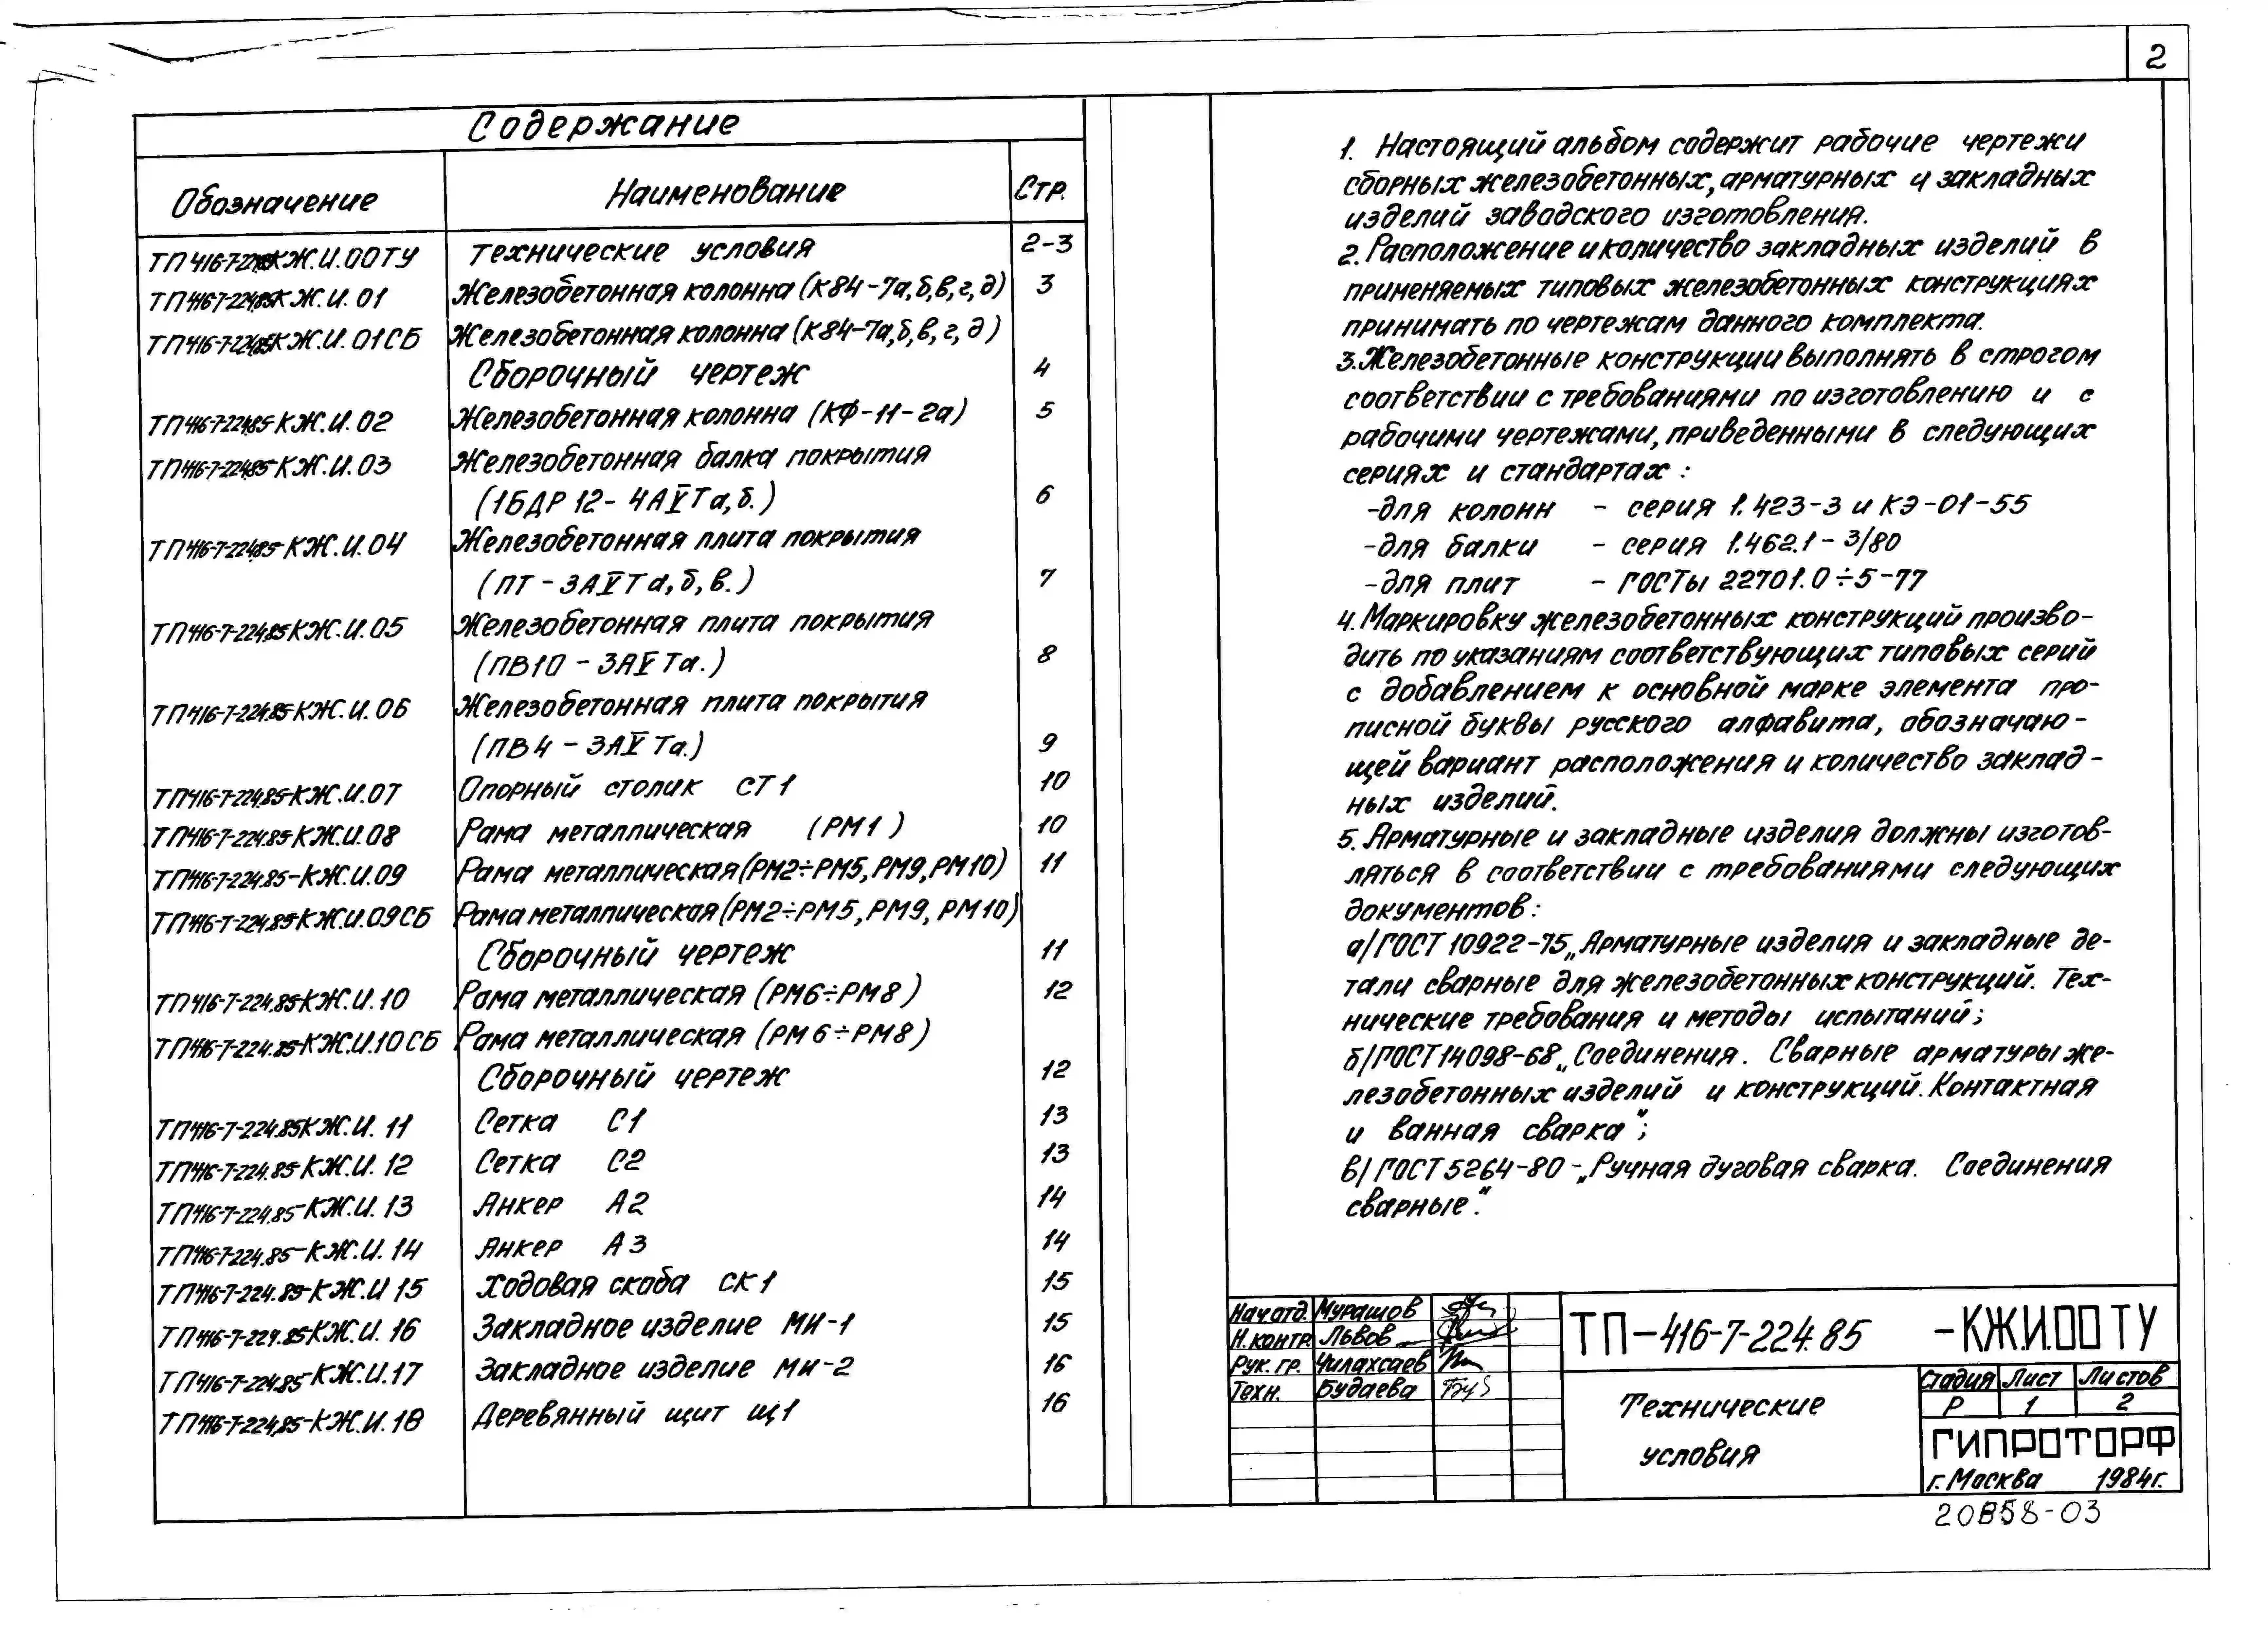 2
Содержание
Обозначение Наименование Стр.
ТП 416-7-224.85 КЖ.И.00ТУ технические условия 2-3
ТП 416-7-224.85 КЖ.И. 01 Железобетонная колонна (К84-7а,б,в,г,д) 3
ТП 416-7-224.85 КЖ.И. 01СБ Железобетонная колонна (К84-7а,б,в,г,д)
Сборочный чертеж 4
ТП 416-7-224.85-КЖ.И. 02 Железобетонная колонна (КФ-11-2а) 5
ТП 416-7-224.85-КЖ.И. 03 Железобетонная балка покрытия
(1БДР 12-4АV̅Та,б.) 6
ТП 416-7-224.85-КЖ.И.04 Железобетонная плита покрытия
(ПТ-3АV̅Та,б,в.) 7
ТП 416-7-224.85 КЖ.И.05 Железобетонная плита покрытия
(ПВ10-3АV̅Та.) 8
ТП 416-7-224.85-КЖ.И. 06 Железобетонная плита покрытия
(ПВ4-3АV̅Та.) 9
ТП 416-7-224.85-КЖ.И.07 Опорный столик СТ1 10
ТП 416-7-224.85-КЖ.И.08 Рама металлическая (РМ1) 10
ТП 416-7-224.85-КЖ.И.09 Рама металлическая (РМ2÷РМ5, РМ9, РМ10) 11
ТП 416-7-224.85-КЖ.И.09СБ Рама металлическая (РМ2÷РМ5, РМ9, РМ10)
Сборочный чертеж 11
ТП 416-7-224.85-КЖ.И.10 Рама металлическая (РМ6÷РМ8) 12
ТП 416-7-224.85-КЖ.И.10СБ Рама металлическая (РМ6÷РМ8)
Сборочный чертеж 12
ТП 416-7-224.85 КЖ.И. 11 Сетка С1 13
ТП 416-7-224.85-КЖ.И. 12 Сетка С2 13
ТП 416-7-224.85-КЖ.И. 13 Анкер А2 14
ТП 416-7-224.85-КЖ.И. 14 Анкер А3 14
ТП 416-7-224.85-КЖ.И 15 Ходовая скоба СК1 15
ТП 416-7-224.85-КЖ.И. 16 Закладное изделие МИ-1 15
ТП 416-7-224.85-КЖ.И.17 Закладное изделие МИ-2 16
ТП 416-7-224.85-КЖ.И.18 Деревянный щит Щ1 16
1. Настоящий альбом содержит рабочие чертежи
сборных железобетонных, арматурных и закладных
изделий заводского изготовления.
2. Расположение и количество закладных изделий в
применяемых типовых железобетонных конструкциях
принимать по чертежам данного комплекта.
3. Железобетонные конструкции выполнять в строгом
соответствии с требованиями по изготовлению и с
рабочими чертежами, приведенными в следующих
сериях и стандартах:
-для колонн - серия 1.423-3 и КЭ-01-55
-для балки - серия 1.462.1-3/80
-для плит - ГОСТы 22701.0÷5-77
4. Маркировку железобетонных конструкций произво-
дить по указаниям соответствующих типовых серий
с добавлением к основной марке элемента про-
писной буквы русского алфавита, обозначаю-
щей вариант расположения и количество заклад-
ных изделий.
5. Арматурные и закладные изделия должны изготов-
ляться в соответствии с требованиями следующих
документов:
а/ ГОСТ 10922-75 „Арматурные изделия и закладные де-
тали сварные для железобетонных конструкций. Тех-
нические требования и методы испытаний;
б/ ГОСТ 14098-68 „Соединения. Сварные арматуры же-
лезобетонных изделий и конструкций. Контактная
и ванная сварка";
в/ ГОСТ 5264-80 - „Ручная дуговая сварка. Соединения
сварные."
Нач.отд. Мурашов
Н.контр. Львов
Рук. гр. Чилахсаев
Техн. Будаева
ТП-416-7-224.85 -КЖ.И.00 ТУ
Технические
условия
Стадия Лист Листов
Р 1 2
ГИПРОТОРФ
г. Москва 1984г.
20858-03